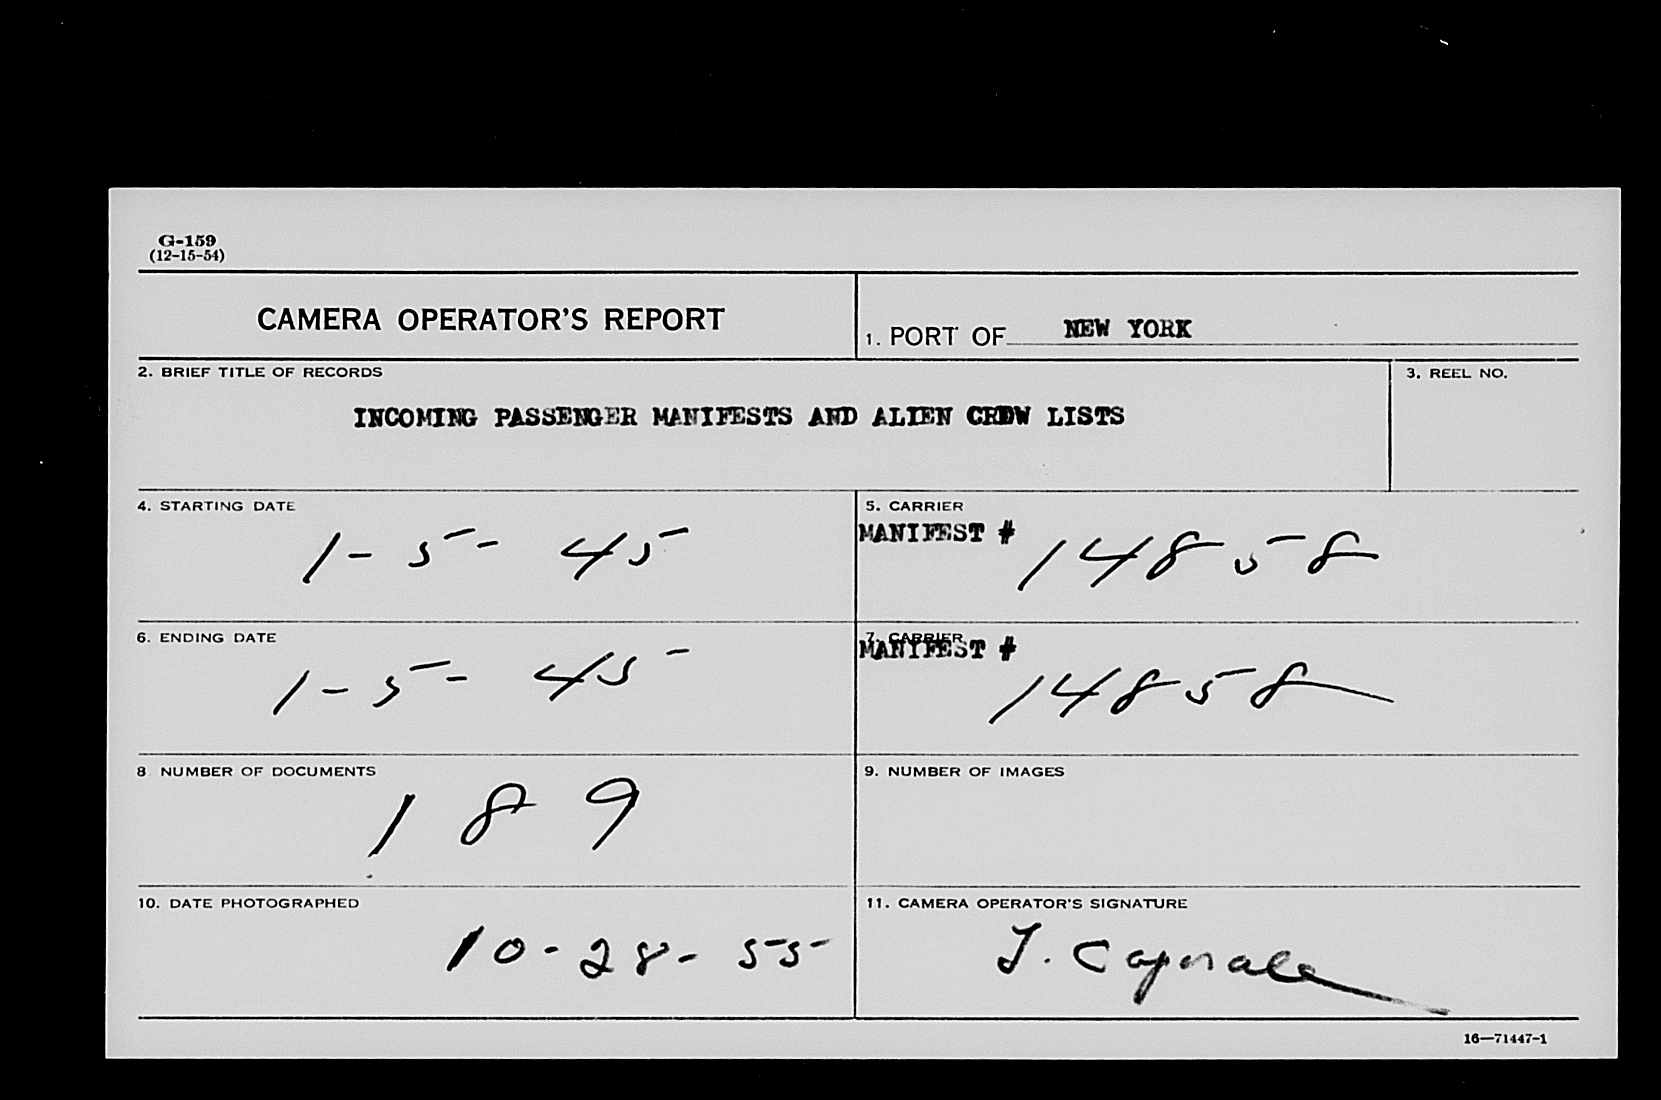 G-159
(12-15-54)
CAMERA OPERATOR'S REPORT
1. PORT OF NEW YORK
2. BRIEF TITLE OF RECORDS
3. REEL NO.
INCOMING PASSENGER MANIFESTS AND ALIEN CREW LISTS
4. STARTING DATE
1-5-45
5. CARRIER
MANIFEST # 14858
6. ENDING DATE
1-5-45
7. CARRIER
MANIFEST # 14858
8 NUMBER OF DOCUMENTS
189
9. NUMBER OF IMAGES
10. DATE PHOTOGRAPHED
10-28-55
11. CAMERA OPERATOR'S SIGNATURE
16—71447-1